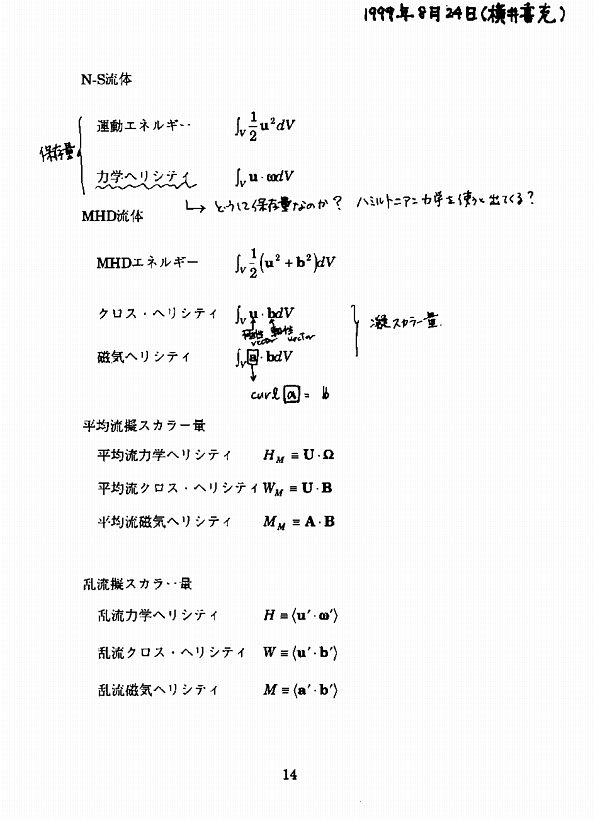 1999年8月24日(横井喜充)
N-S流体
運動エネルギー ∫_V 1/2 u²dV
保存量
力学ヘリシティ ∫_V u・ωdV
↳ どうして保存量なのか? ハミルトニアン力学を使うと出てくる?
MHD流体
MHDエネルギー ∫_V 1/2(u² + b²)dV
クロス・ヘリシティ ∫_V u・bdV
極性vector 軸性vector
擬スカラー量.
磁気ヘリシティ ∫_V a・bdV
curl a = b
平均流擬スカラー量
平均流力学ヘリシティ H_M ≡ U・Ω
平均流クロス・ヘリシティ W_M ≡ U・B
平均流磁気ヘリシティ M_M ≡ A・B
乱流擬スカラー量
乱流力学ヘリシティ H ≡ ⟨u′・ω′⟩
乱流クロス・ヘリシティ W ≡ ⟨u′・b′⟩
乱流磁気ヘリシティ M ≡ ⟨a′・b′⟩
14